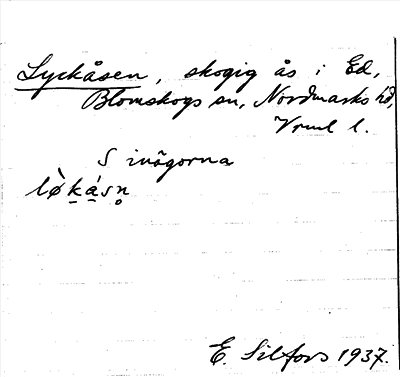 Lyckåsen, skogig ås i Ed,
Blomskogs sn, Nordmarks hd,
Vrml l.
S inägorna
lø̀ḵá̱sn̥
E. Silfors 1937.